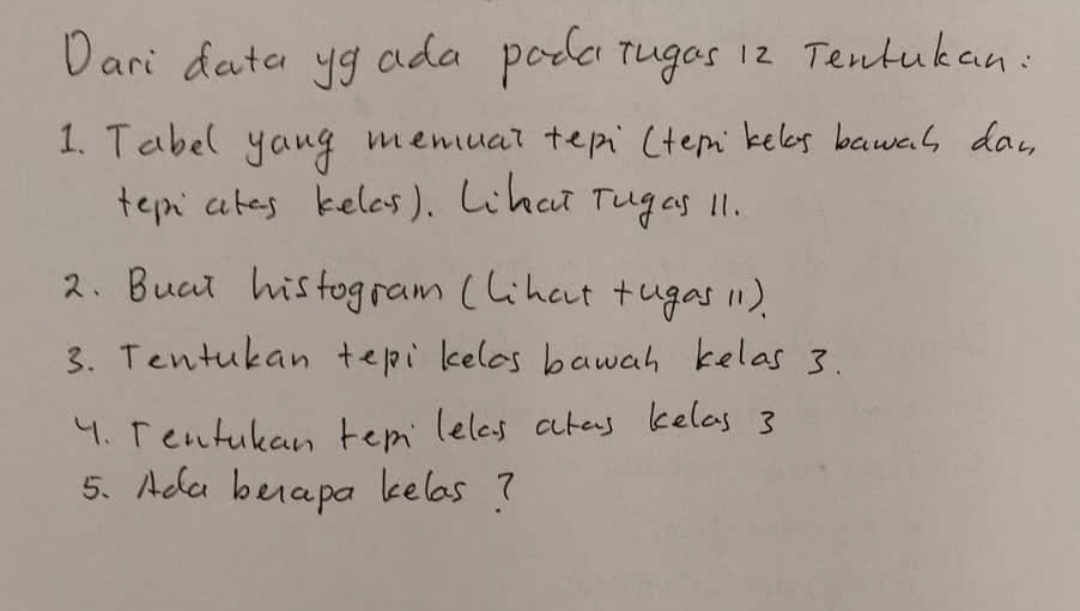 Dari data yg ada pada Tugas 12 Tentukan:
1. Tabel yang memuat tepi (tepi kelas bawah dan
tepi atas kelas). Lihat Tugas 11.
2. Buat histogram (Lihat tugas 11).
3. Tentukan tepi kelas bawah kelas 3.
4. Tentukan tepi lelas atas kelas 3
5. Ada berapa kelas ?